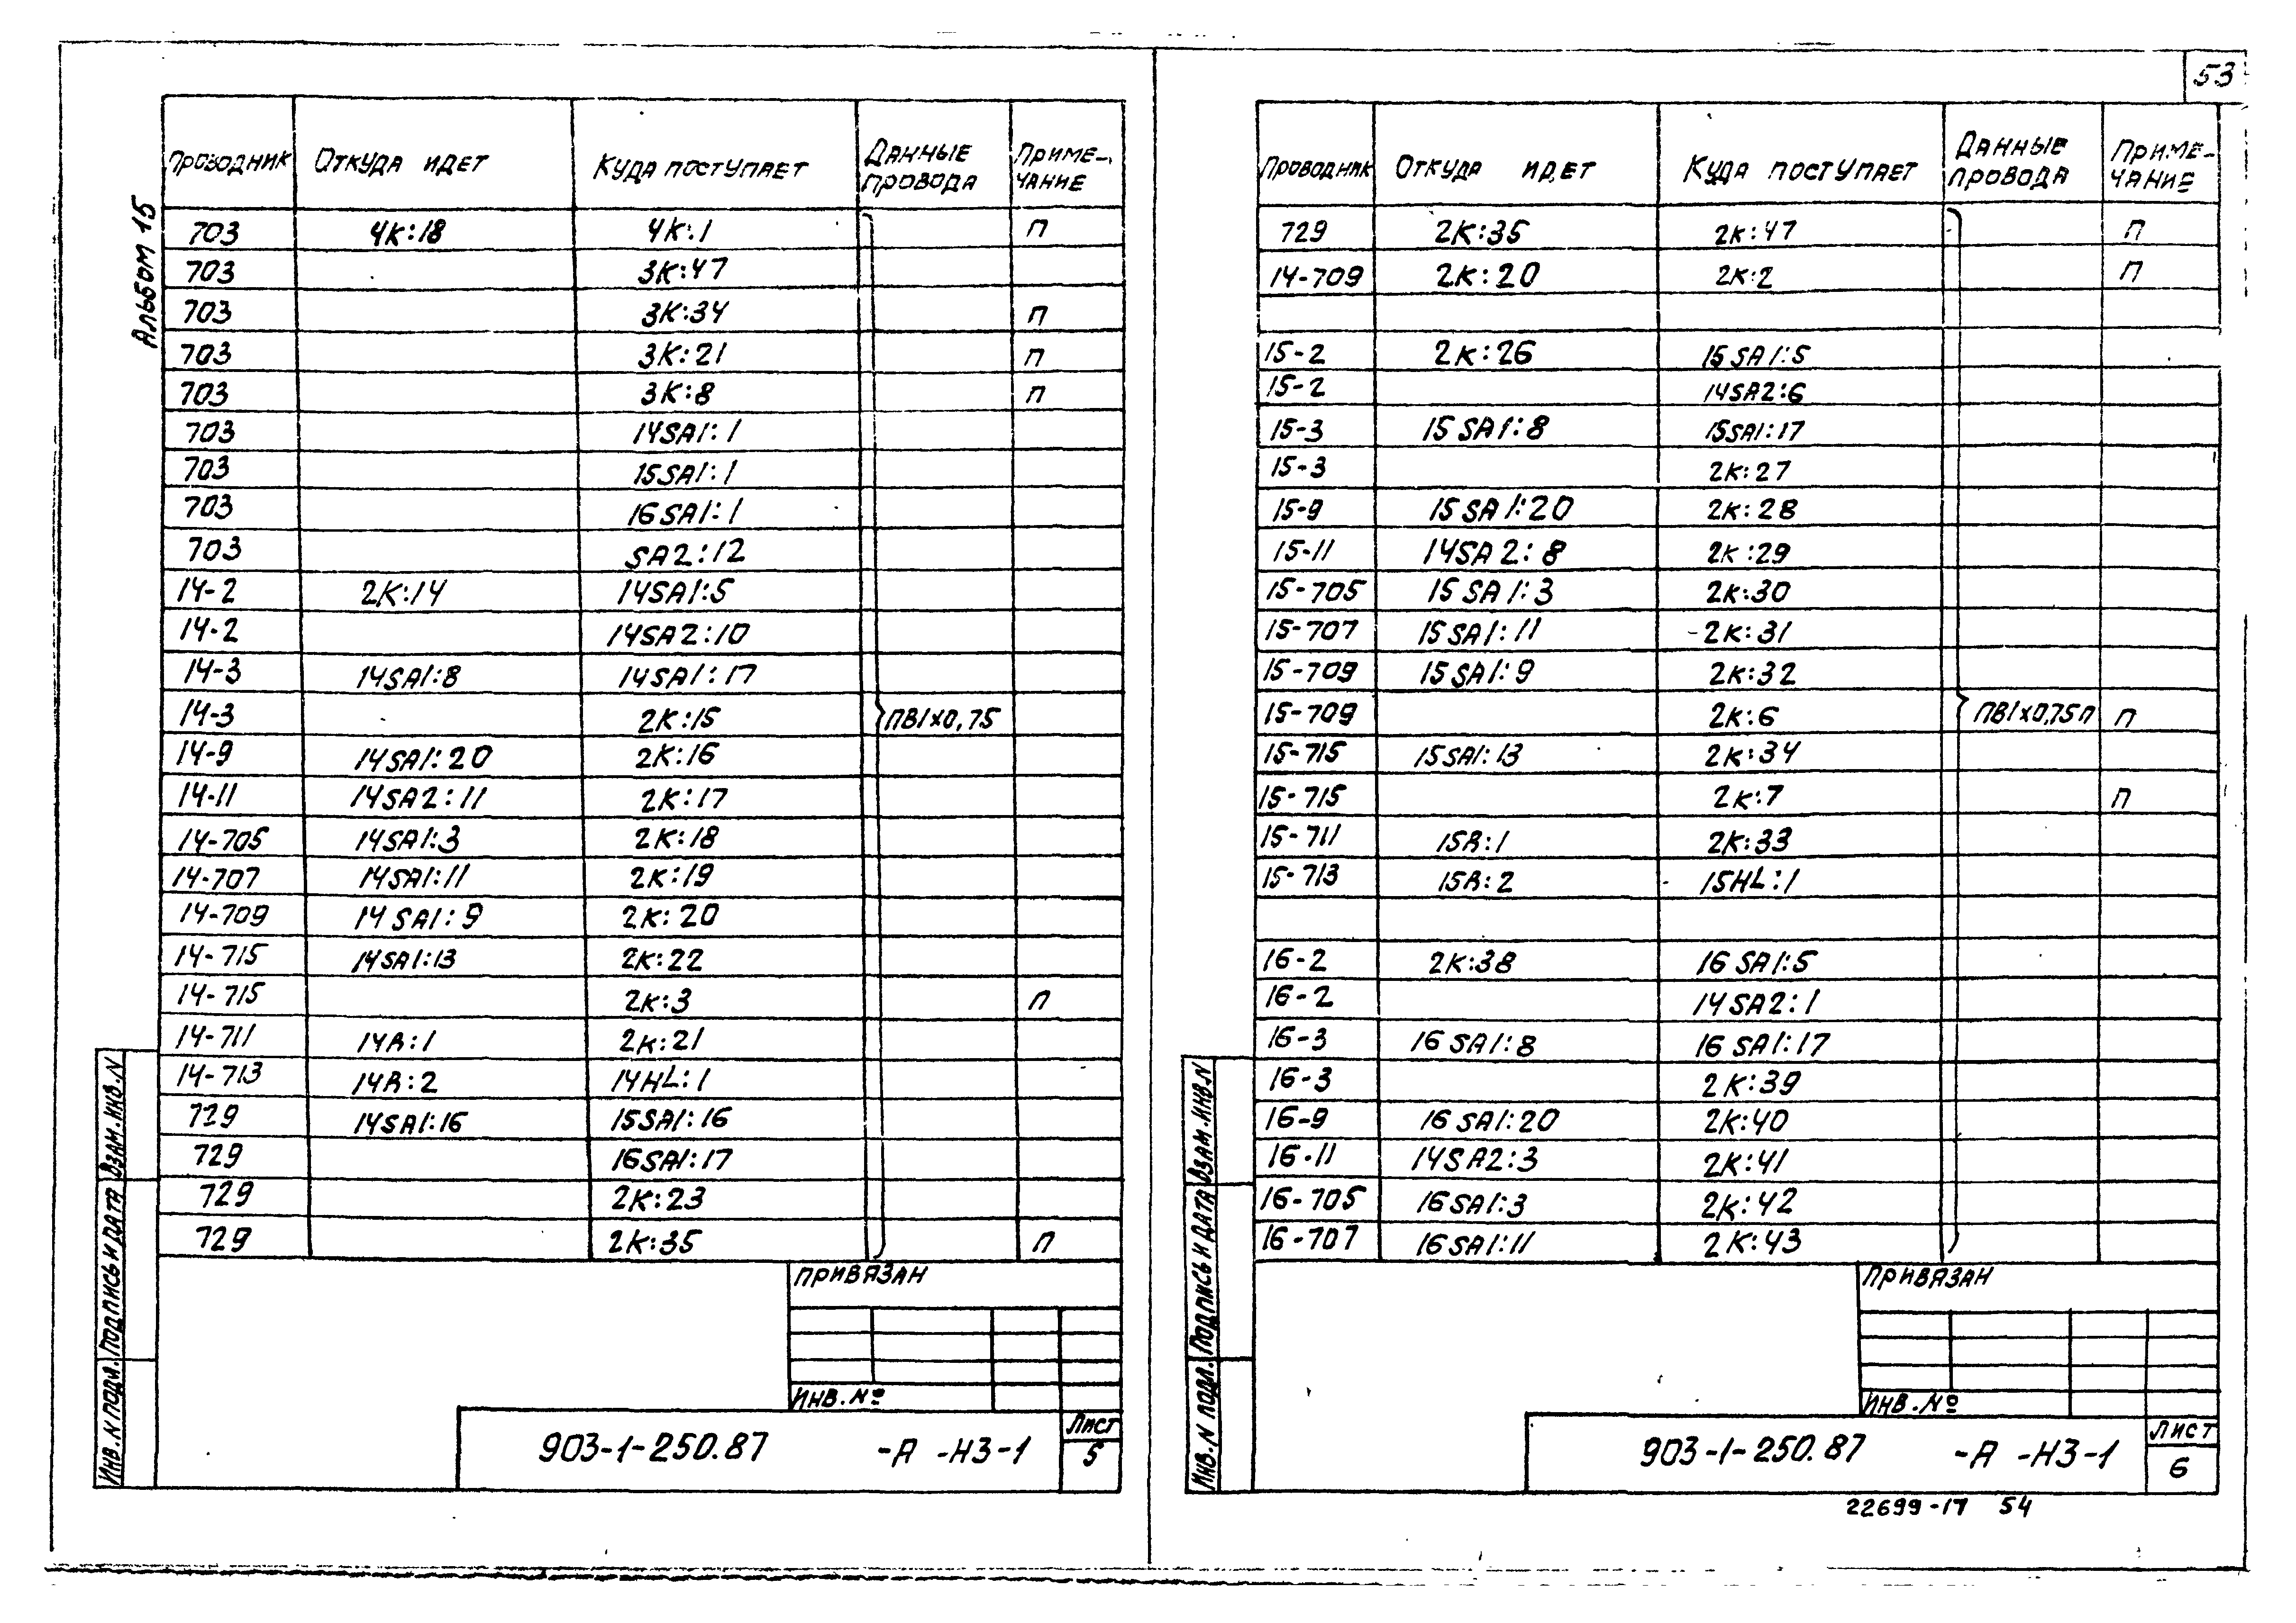 53
Альбом 15
Проводник Откуда идет Куда поступает Данные провода Приме-чание
703 4К:18 4К:1 П
703 3К:47
703 3К:34 П
703 3К:21 П
703 3К:8 П
703 14SA1:1
703 15SA1:1
703 16SA1:1
703 SA2:12
14-2 2К:14 14SA1:5
14-2 14SA2:10
14-3 14SA1:8 14SA1:17
14-3 2К:15 ПВ1х0,75
14-9 14SA1:20 2К:16
14-11 14SA2:11 2К:17
14-705 14SA1:3 2К:18
14-707 14SA1:11 2К:19
14-709 14SA1:9 2К:20
14-715 14SA1:13 2К:22
14-715 2К:3 П
14-711 14R:1 2К:21
14-713 14R:2 14HL:1
729 14SA1:16 15SA1:16
729 16SA1:17
729 2К:23
729 2К:35 П
Привязан
Инв. №
903-1-250.87 -А -НЗ-1
Лист
5
Инв. N подл. Подпись и дата Взам. инв. N
Проводник Откуда идет Куда поступает Данные провода Приме-чание
729 2К:35 2К:47 П
14-709 2К:20 2К:2 П
15-2 2К:26 15SA1:5
15-2 14SA2:6
15-3 15SA1:8 15SA1:17
15-3 2К:27
15-9 15SA1:20 2К:28
15-11 14SA2:8 2К:29
15-705 15SA1:3 2К:30
15-707 15SA1:11 2К:31
15-709 15SA1:9 2К:32
15-709 2К:6 ПВ1х0,75П П
15-715 15SA1:13 2К:34
15-715 2К:7 П
15-711 15R:1 2К:33
15-713 15R:2 15HL:1
16-2 2К:38 16SA1:5
16-2 14SA2:1
16-3 16SA1:8 16SA1:17
16-3 2К:39
16-9 16SA1:20 2К:40
16-11 14SA2:3 2К:41
16-705 16SA1:3 2К:42
16-707 16SA1:11 2К:43
Привязан
Инв. №
903-1-250.87 -А -НЗ-1
Лист
6
Инв. N подл. Подпись и дата Взам. инв. N
22699-17 54